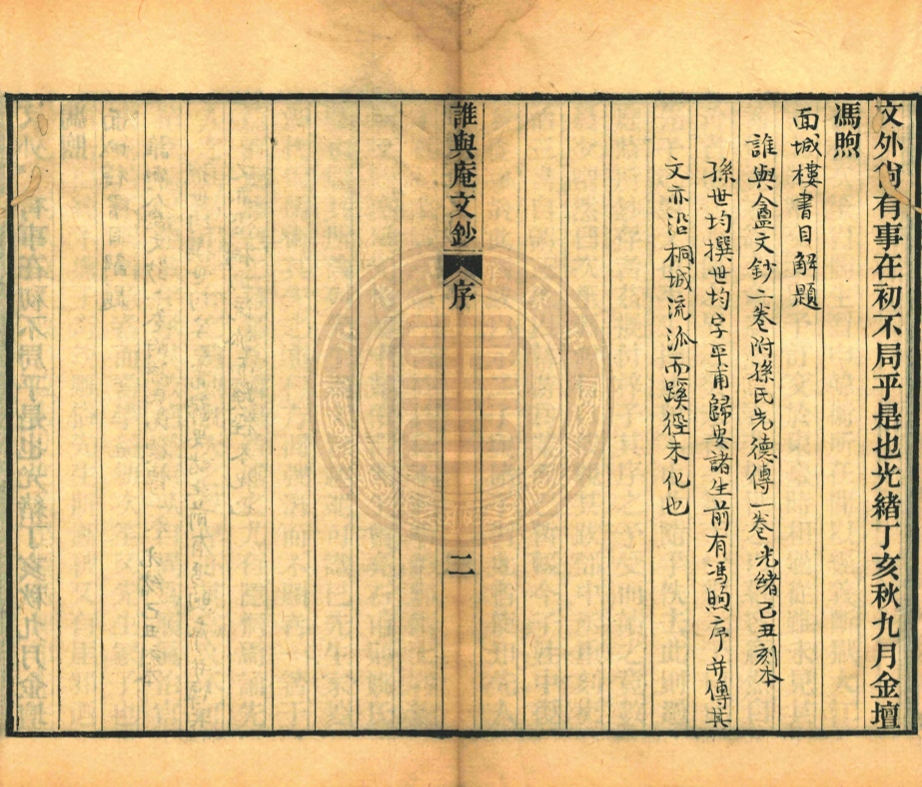 文外尙有事在初不局乎是也光緒丁亥秋九月金壇
馮煦
面城樓書目解題
誰與盦文鈔二卷附孫氏先德傳一卷光緒己丑刻本
孫世均撰世均字平甫歸安諸生前有馮煦序并傳其
文亦沿桐城流派而蹊徑未化也
誰與庵文鈔
序
二